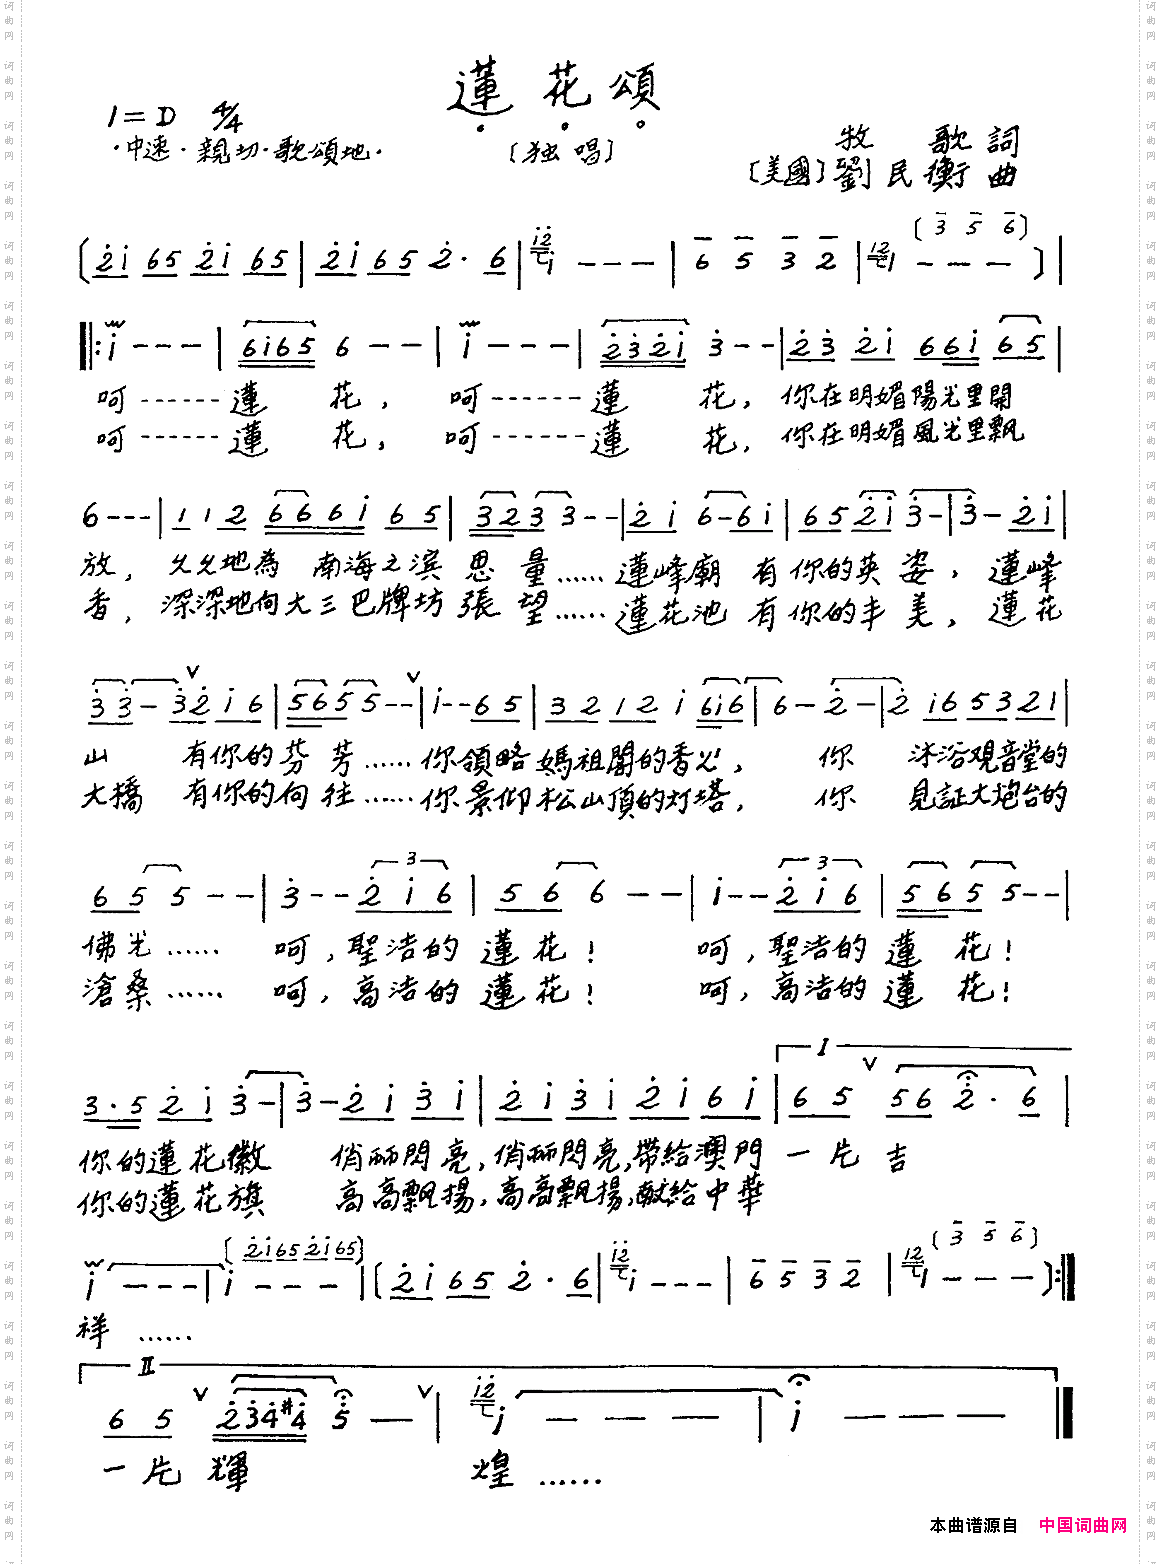 蓮花頌
1=D 4/4
·中速·親切·歌頌地·
〔独唱〕
牧歌詞
〔美國〕劉民衡曲
呵------蓮花，呵------蓮花，你在明媚陽光里開
呵------蓮花，呵------蓮花，你在明媚風光里飄
放，久久地為南海之滨思量……蓮峰廟有你的英姿，蓮峰
香，深深地向大三巴牌坊張望……蓮花池有你的丰美，蓮花
山有你的芬芳……你領略媽祖閣的香火，你沐浴观音堂的
大橋有你的向往……你景仰松山頂的灯塔，你見証大炮台的
佛光……呵，聖洁的蓮花！呵，聖洁的蓮花！
滄桑……呵，高洁的蓮花！呵，高洁的蓮花！
你的蓮花徽俏丽閃亮，俏丽閃亮，带給澳門一片吉
你的蓮花旗高高飄揚，高高飄揚，献給中華
祥……
一片輝煌……
本曲谱源自 中国词曲网